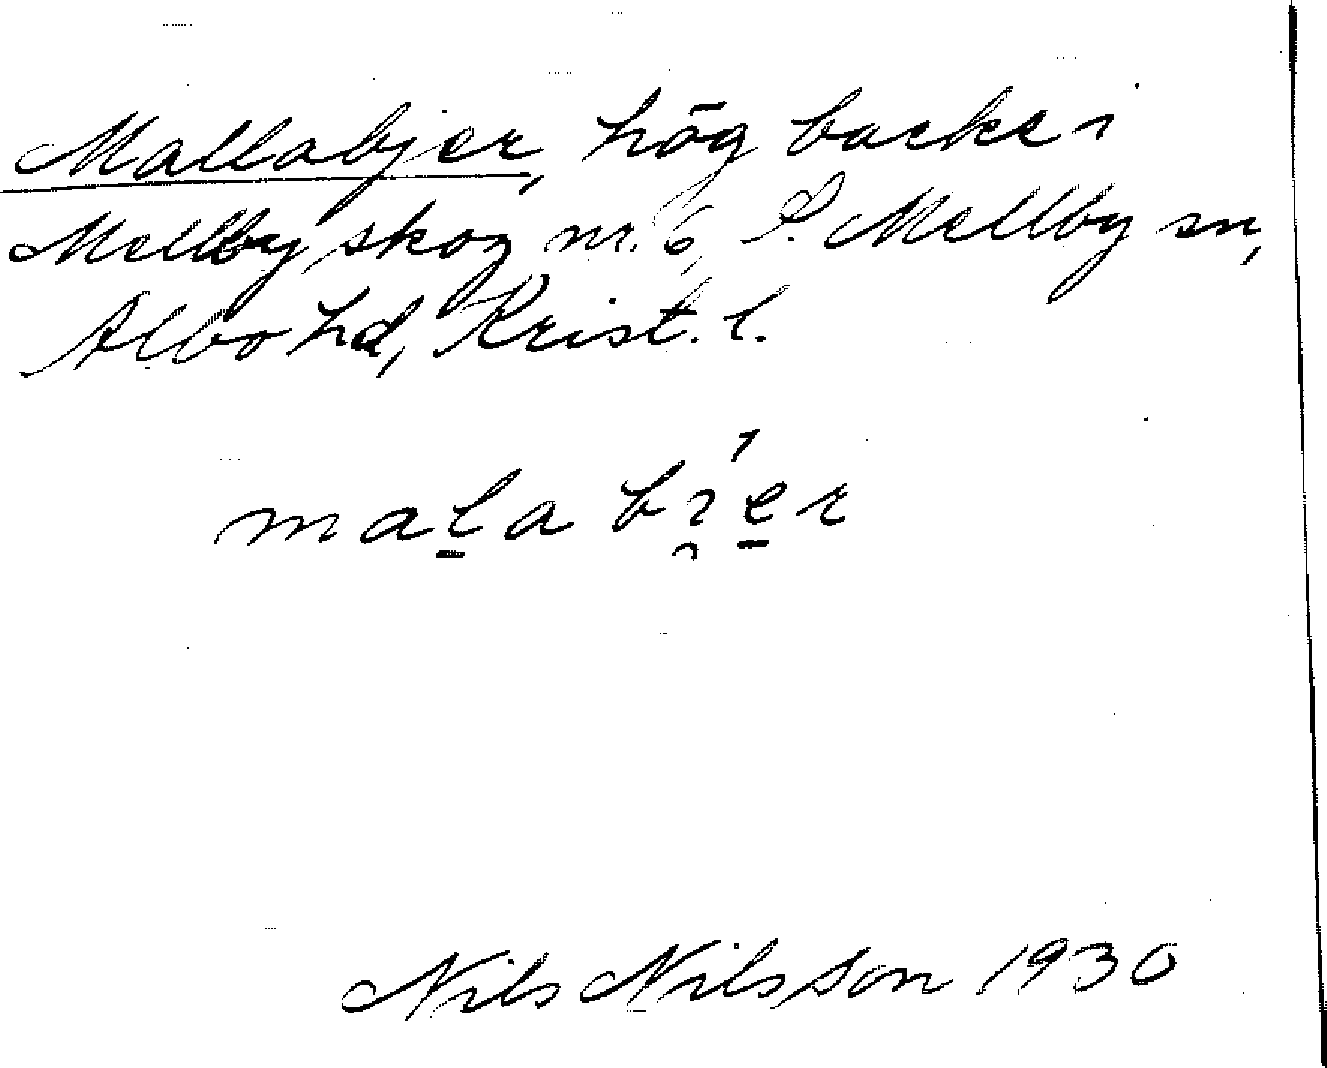 Mallabjer, hög backe i
Mellby skog nr. 6, S. Mellby sn,
Albo hd, Krist. l.
mala bier
Nils Nilsson 1930